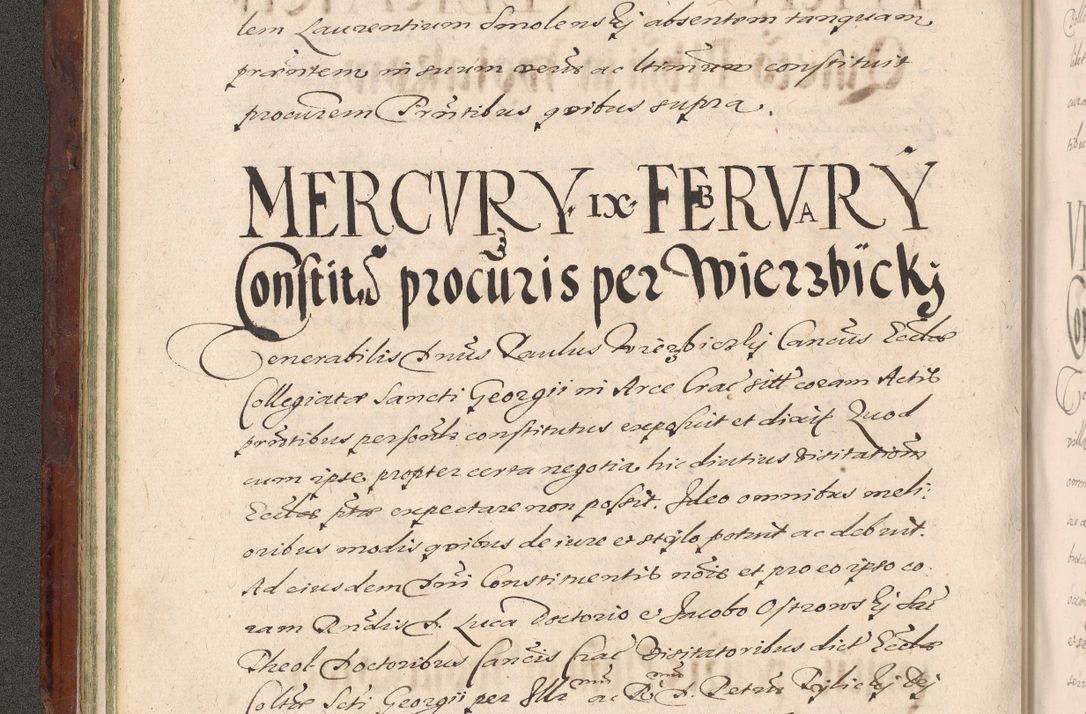 lem Laurentium Smolenskij absentem tanquam
präntem in suum verũ ac ltimũm constituit
procurem Prñtibus quibus supra.
MERCVRY IX FEBRVARY
Constitũ procũris per Wierzbicky
Venerabilis Dnũs Paulus Wierzbickij Cancũs Eccłæ
Collegiatæ Sancti Georgii in Arce Crac̃ sitt̃ coram Actis
prñtibus personłr constitutus exposuit et dixit Quod
cum ipse propter certa negotia hic diutius visitationẽ
Eccłæ ptæ expectare non possit. Ideo omnibus meli:
oribus modis quibus de iure et stylo potuit ac debuit.
Ad eiusdem Dni Constituentis nõie et pro eo ipso co
ram Rndis D. Luca Doctorio et Jacobo Ostrowskij Sac̃
Theol. Doctoribus Canc̃is Crac̃ Visitatoribus dict̃ Eccłæ
Coltæ Scti Georgii per Illr mũ ac R mũ D. Petrũ Tylickij Dej